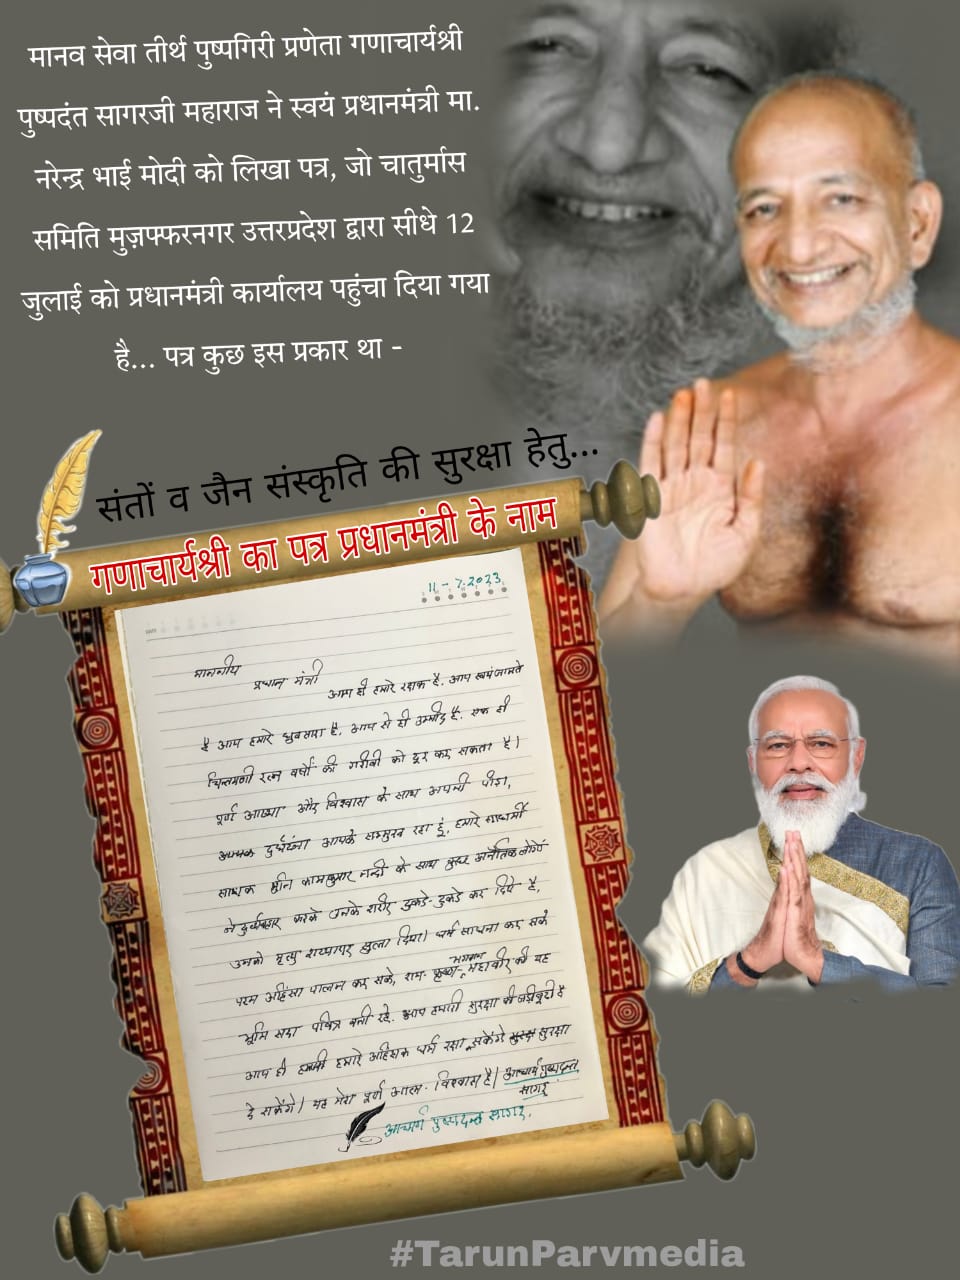 मानव सेवा तीर्थ पुष्पगिरी प्रणेता गणाचार्यश्री
पुष्पदंत सागरजी महाराज ने स्वयं प्रधानमंत्री मा.
नरेन्द्र भाई मोदी को लिखा पत्र, जो चातुर्मास
समिति मुज़फ्फरनगर उत्तरप्रदेश द्वारा सीधे 12
जुलाई को प्रधानमंत्री कार्यालय पहुंचा दिया गया
है... पत्र कुछ इस प्रकार था -
संतों व जैन संस्कृति की सुरक्षा हेतु...
गणाचार्यश्री का पत्र प्रधानमंत्री के नाम
11-7-2023
माननीय
प्रधान मंत्री
आप ही हमारे रक्षक है. आप स्वयं जानते
है आप हमारे ध्रुवतारा है. आप से ही उम्मीद है. एक ही
चिन्तामणी रत्न वर्षों की गरीबी को दूर कर सकता है।
पूर्ण आस्था और विश्वास के साथ अपनी पीड़ा,
आपके सम्मुख रख रहा हूं, हमारे साधर्मी
साधक मुनि कामकुमार नन्दी के साथ अनैतिक लोगों
ने दुर्व्यवहार करके उनके शरीर टुकडे-टुकडे कर दिये है,
उनको मृत्यु शय्यापर सुला दिया। धर्म साधना कर सके
परम अहिंसा पालन कर सके, राम- कृष्ण- भगवान महावीर की यह
भूमि सदा पवित्र बनी रहे. आप हमारी सुरक्षा की
आप ही हमारे अहिंसक धर्म रक्षा सकेंगे सुरक्षा
दे सकेंगे। यह मेरा पूर्ण आत्म- विश्वास है। आचार्य पुष्पदन्त
सागर
आचार्य पुष्पदन्त सागर.
#TarunParvmedia